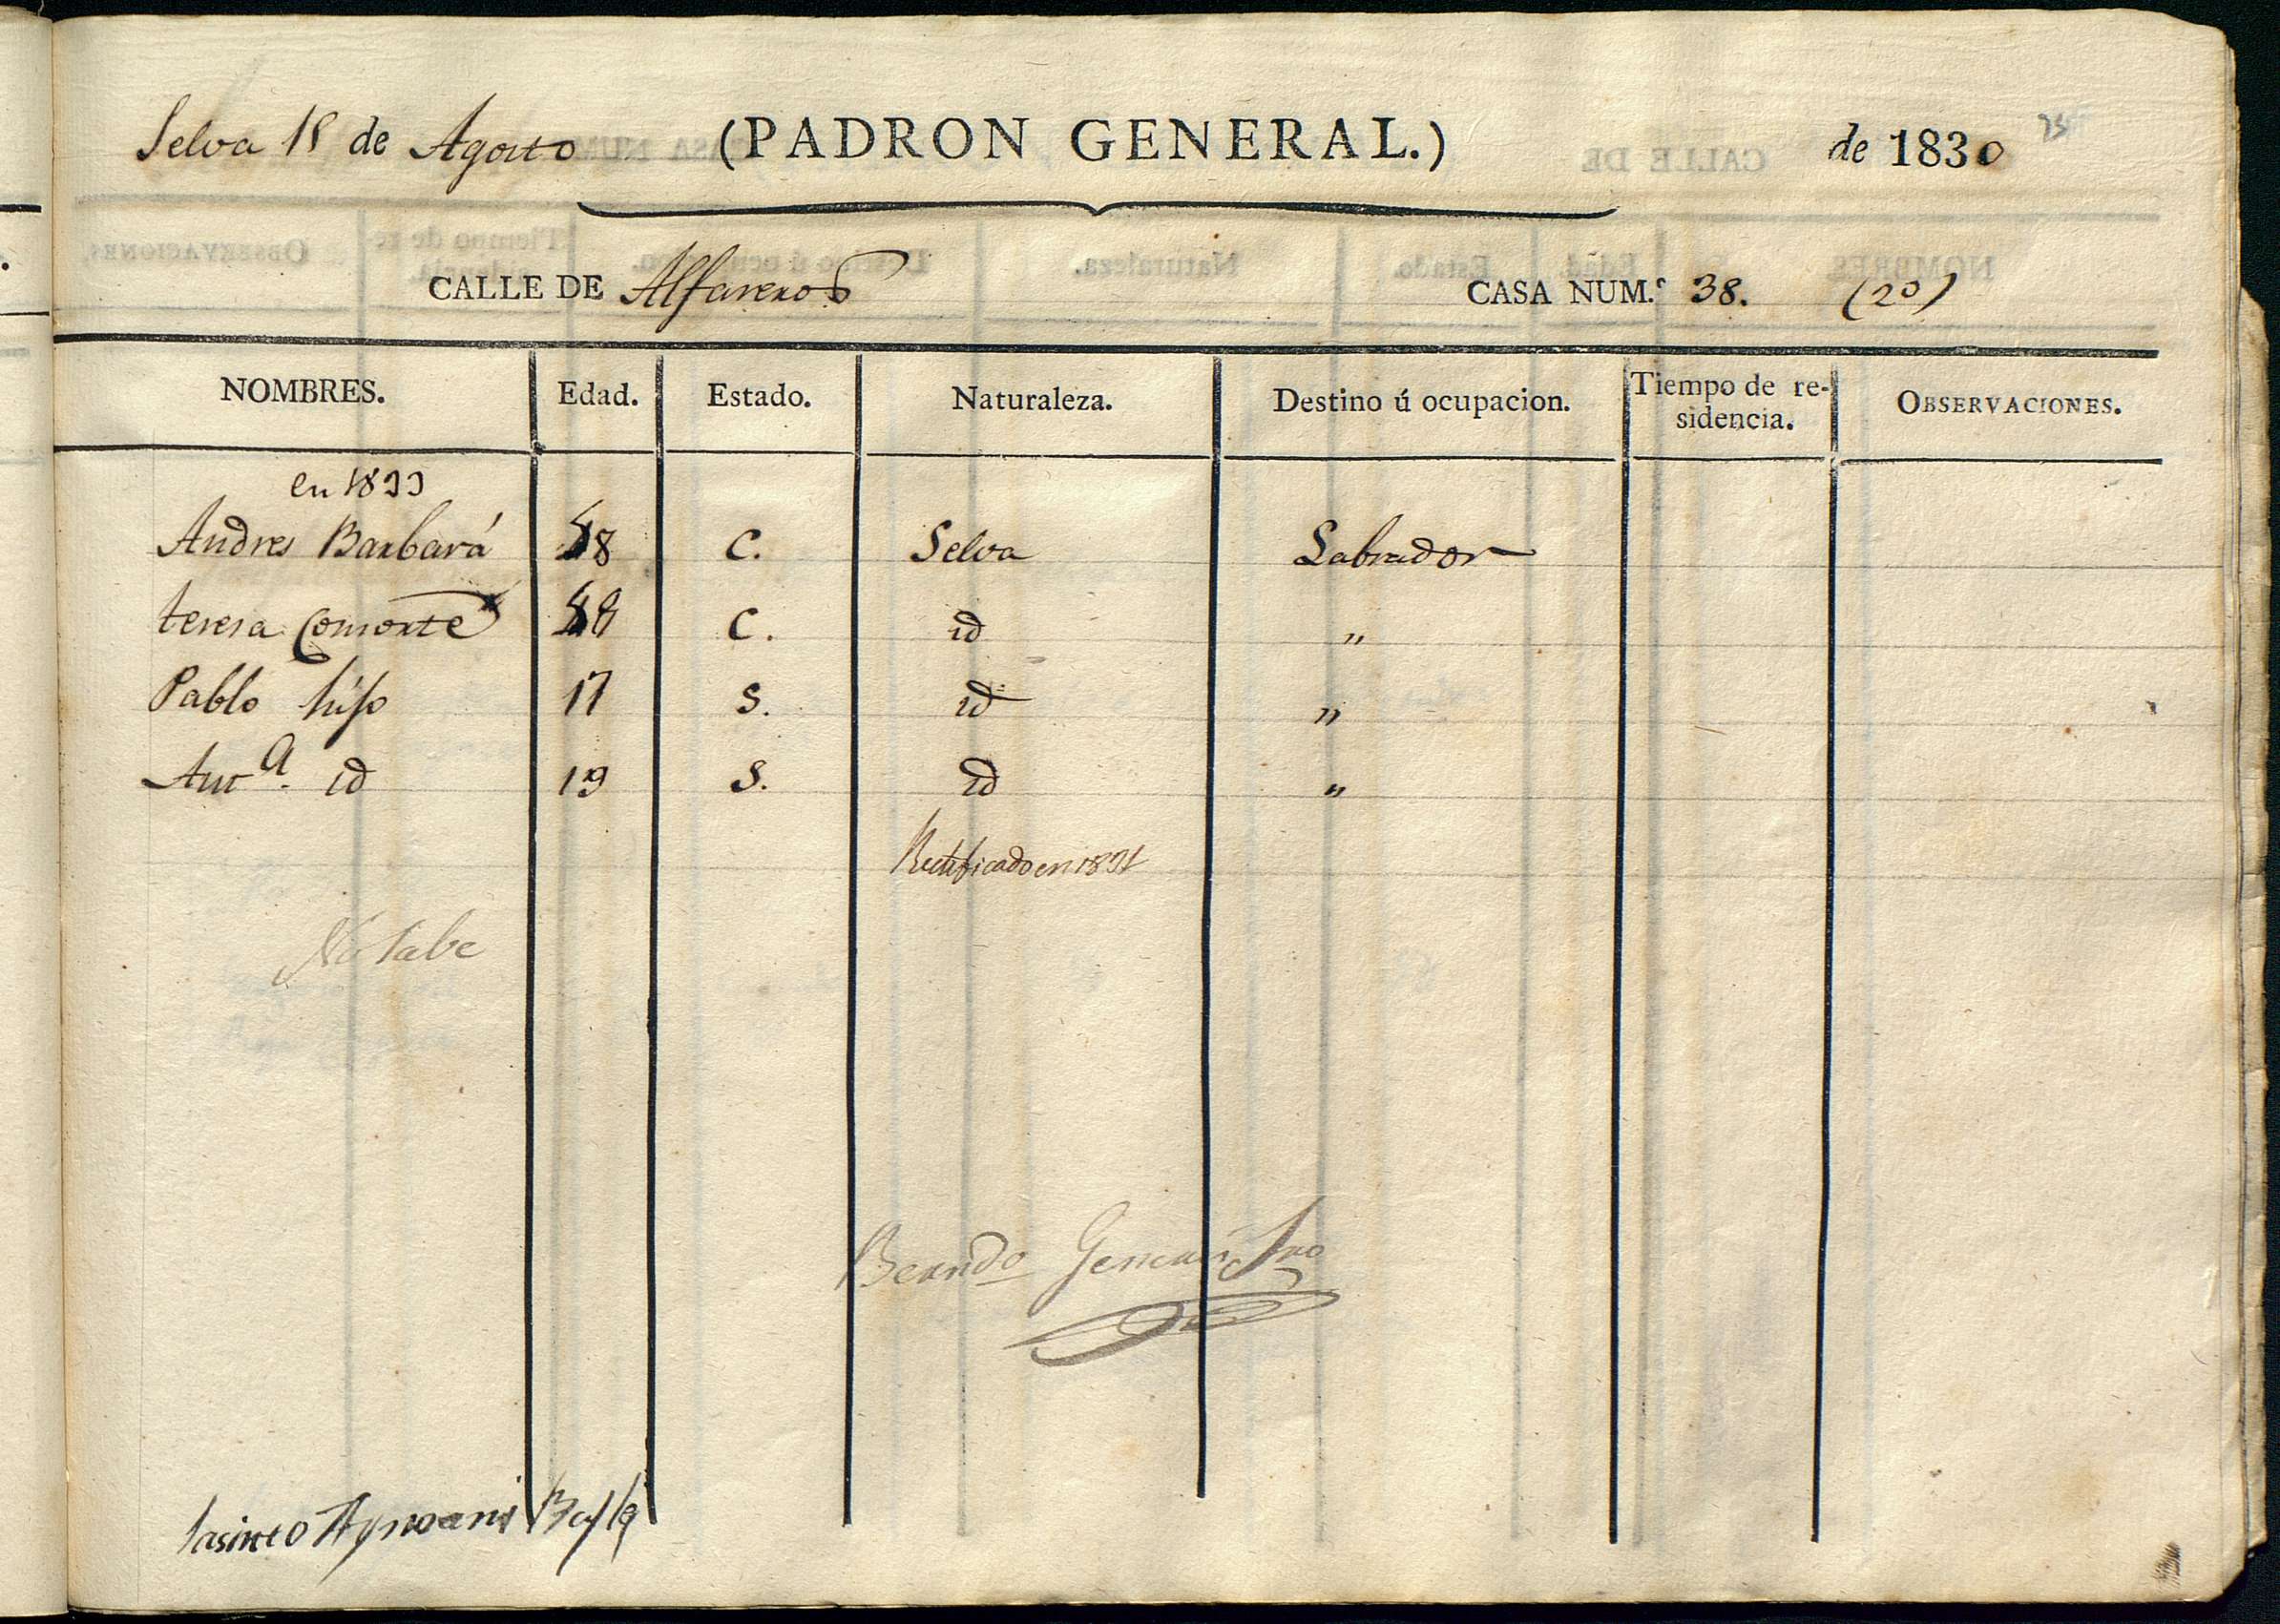 Selva 18 de Agosto (PADRON GENERAL.) de 1830
CALLE DE Alfareros CASA NUM.º 38. (20)
NOMBRES. Edad. Estado. Naturaleza. Destino ú ocupacion. Tiempo de re-
sidencia. OBSERVACIONES.
en 1833
Andres Barbará 58 C. Selva Labrador
teresa Consorte C. id "
Pablo hijo 17 S. id "
Ant.ª id 19 S. id "
Rectificado en 1831
No Sabe
Jacinto Aymami Bayle